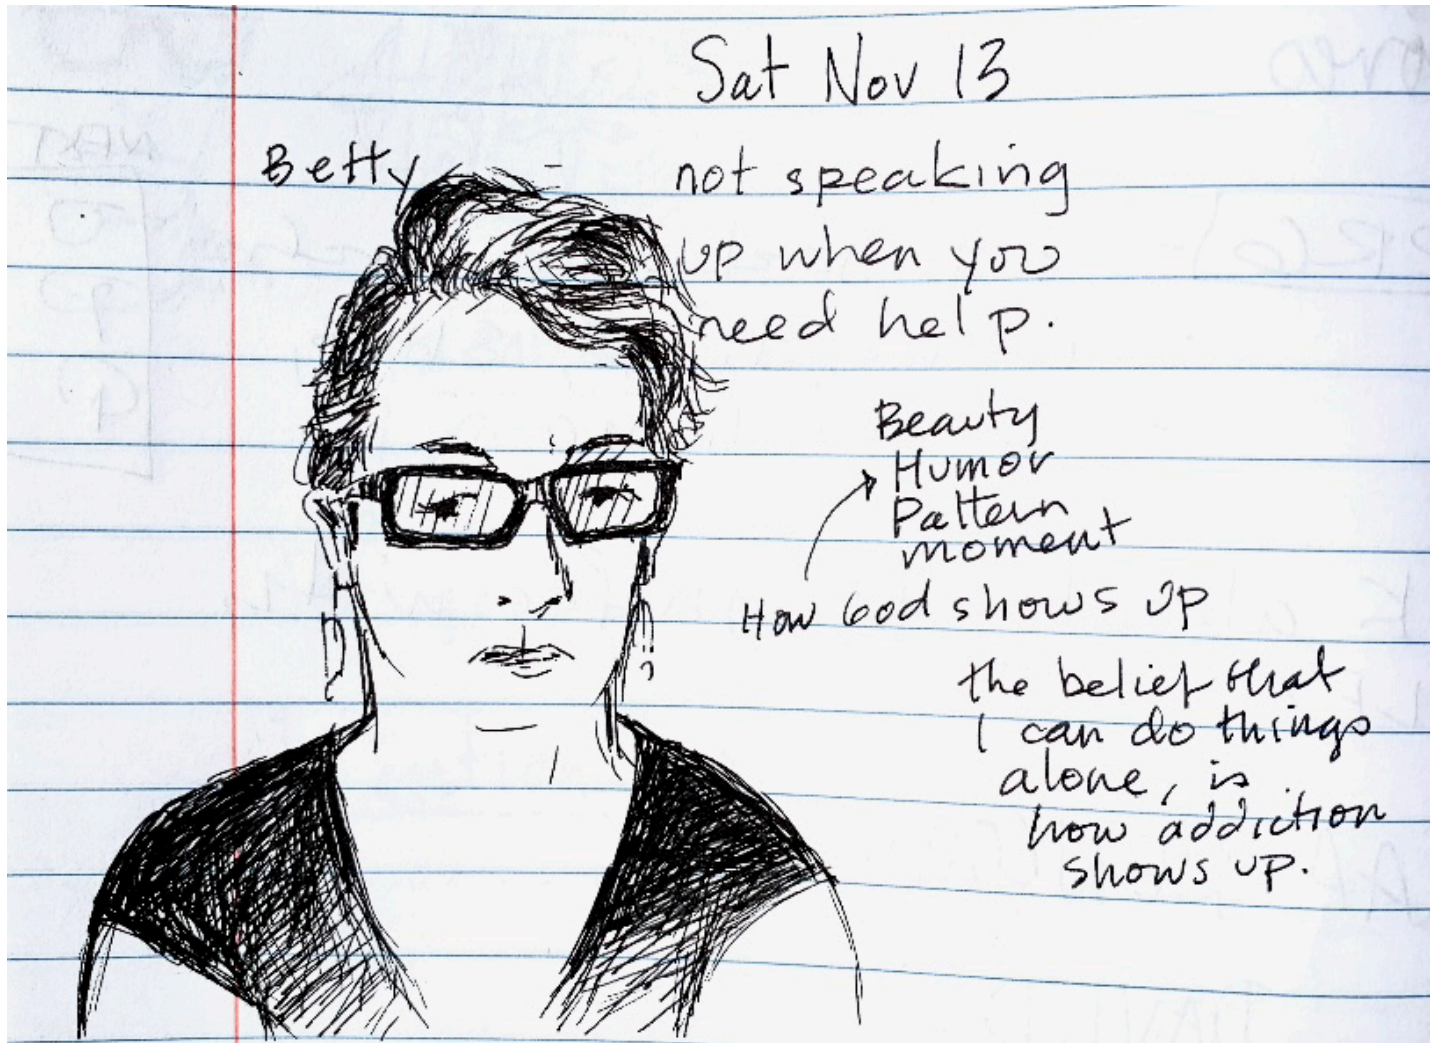 Sat Nov 13
Betty
not speaking
up when you
need help.
Beauty
Humor
Pattern
moment
How God shows up
the belief that
I can do things
alone, is
how addiction
shows up.